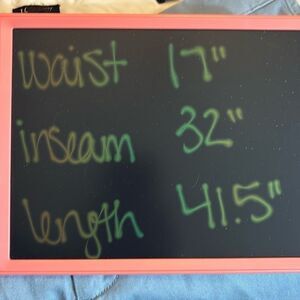 waist 17"
inseam 32"
length 41.5"